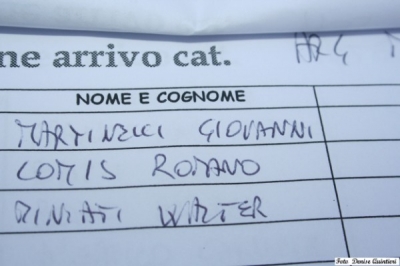 ne arrivo cat. HRG
NOME E COGNOME
MARTINELLI GIOVANNI
COMIS ROMANO
MINIATI WALTER
Foto Denise Quintieri